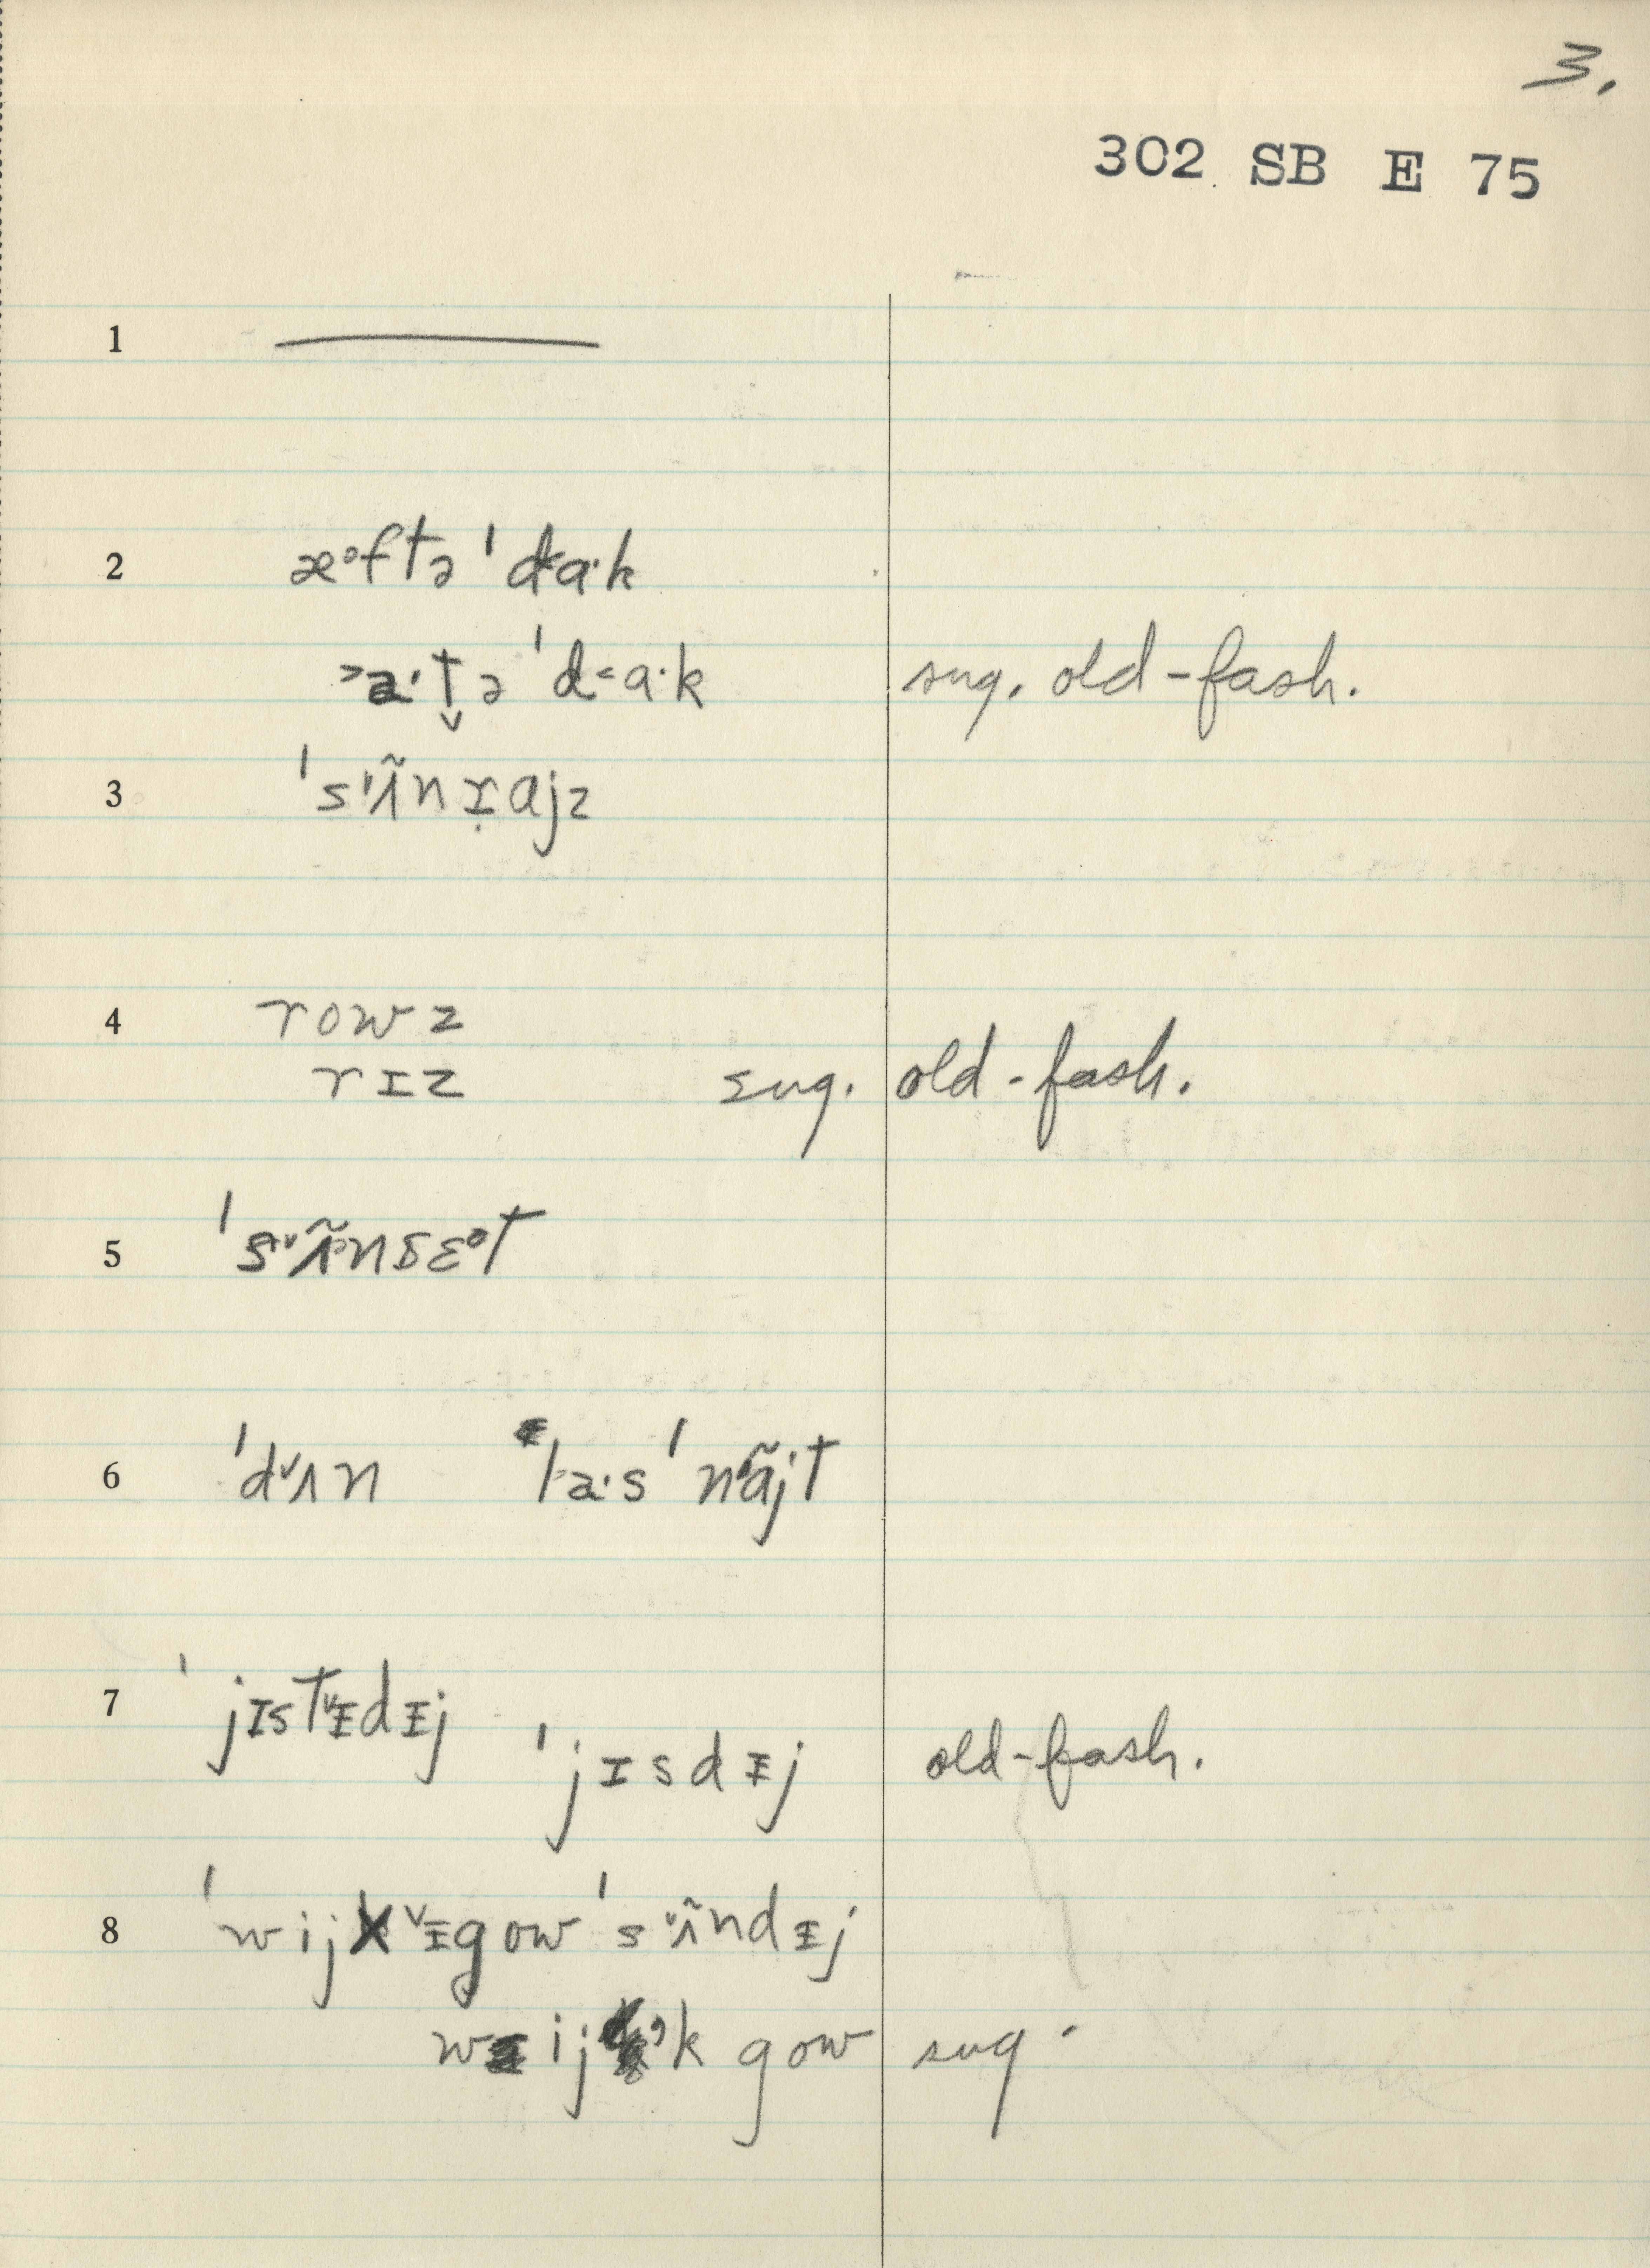 3.
302 SB E 75
1
2 æᵊftə ˈd<ɑ·k
>a·t̬ə ˈd<ɑ·k sug. old-fash.
3 ˈsʌ̃nrɑjz
4 rowz
rɪz sug. old-fash.
5 ˈsᵛʌ̃nsɛᵊt
6 ˈdᵛʌn la·s ˈnɑ̃jt
7 ˈjɪstᵛᵻdᵻj
ˈjɪsdᵻj old-fash.
8 ˈwijkᵛᵻgow ˈsᵛʌ̃ndᵻj
wijk gow sug.